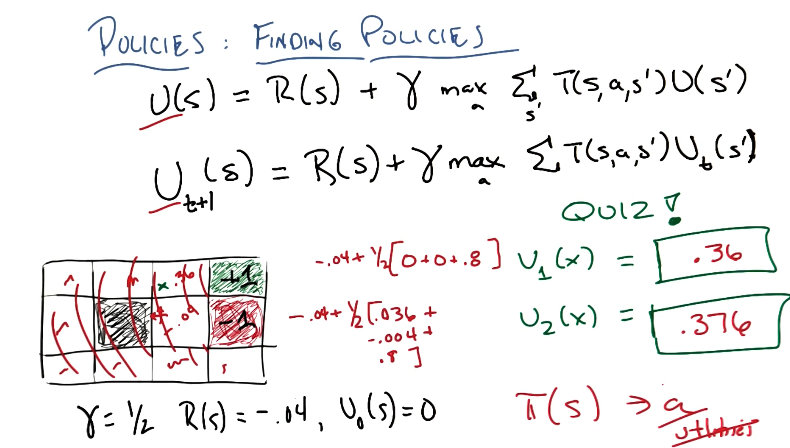 POLICIES : FINDING POLICIES
U(s) = R(s) + γ max_a Σ_s' T(s,a,s') U(s')
U_t+1(s) = R(s) + γ max_a Σ T(s,a,s') U_t(s')
QUIZ!
-.04 + 1/2 [0+0+.8]
U_1(x) = .36
-.04 + 1/2 [.036 +
-.004 +
.8]
U_2(x) = .376
x .36 +1
-.04 -1
γ = 1/2 R(s) = -.04, U_0(s) = 0
π(s) → a
utilities